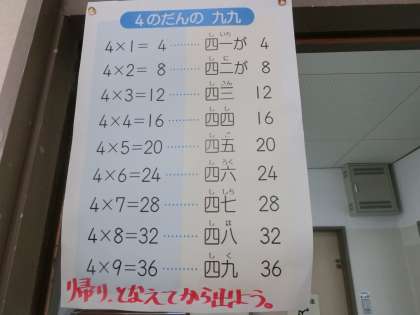 4のだんの 九九
4×1= 4 ……… 四一が 4
4×2= 8 ……… 四二が 8
4×3=12 ……… 四三 12
4×4=16 ……… 四四 16
4×5=20 ……… 四五 20
4×6=24 ……… 四六 24
4×7=28 ……… 四七 28
4×8=32 ……… 四八 32
4×9=36 ……… 四九 36
帰り、となえてから出よう。